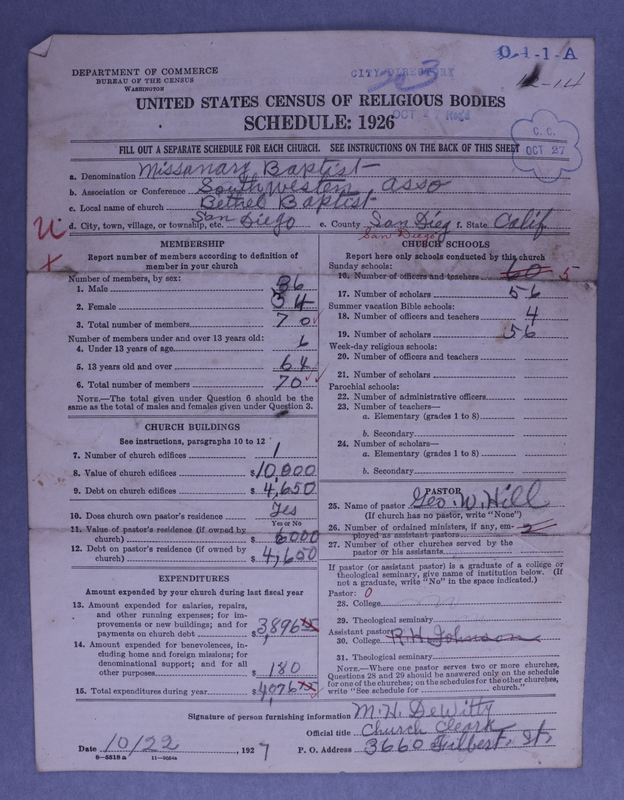 DEPARTMENT OF COMMERCE
BUREAU OF THE CENSUS
WASHINGTON
CITY DIRECTORY
O-1-1-A
12-14
UNITED STATES CENSUS OF RELIGIOUS BODIES
SCHEDULE: 1926
OCT 27 Rec'd
C. C.
OCT 27
FILL OUT A SEPARATE SCHEDULE FOR EACH CHURCH. SEE INSTRUCTIONS ON THE BACK OF THIS SHEET
a. Denomination Missanary Baptist
b. Association or Conference Southwestern asso
c. Local name of church Bethel Baptist
d. City, town, village, or township, etc. San Diego e. County San Dieg f. State Calif
San Diego
MEMBERSHIP
Report number of members according to definition of
member in your church
Number of members, by sex:
1. Male 36
2. Female 34
3. Total number of members 70
Number of members under and over 13 years old:
4. Under 13 years of age 6
5. 13 years old and over 64
6. Total number of members 70
NOTE.—The total given under Question 6 should be the
same as the total of males and females given under Question 3.
CHURCH BUILDINGS
See instructions, paragraphs 10 to 12
7. Number of church edifices 1
8. Value of church edifices $10,000
9. Debt on church edifices $4,650
10. Does church own pastor's residence Yes
Yes or No
11. Value of pastor's residence (if owned by
church) $6000
12. Debt on pastor's residence (if owned by
church) $4,650
EXPENDITURES
Amount expended by your church during last fiscal year
13. Amount expended for salaries, repairs,
and other running expenses; for im-
provements or new buildings; and for
payments on church debt $3,896 55
14. Amount expended for benevolences, in-
cluding home and foreign missions; for
denominational support; and for all
other purposes $180
15. Total expenditures during year $4,076 55
CHURCH SCHOOLS
Report here only schools conducted by this church
Sunday schools:
16. Number of officers and teachers 60 5
17. Number of scholars 56
Summer vacation Bible schools:
18. Number of officers and teachers 4
19. Number of scholars 56
Week-day religious schools:
20. Number of officers and teachers
21. Number of scholars
Parochial schools:
22. Number of administrative officers
23. Number of teachers—
a. Elementary (grades 1 to 8)
b. Secondary
24. Number of scholars—
a. Elementary (grades 1 to 8)
b. Secondary
PASTOR
25. Name of pastor Geo. W. Hill
(If church has no pastor, write "None")
26. Number of ordained ministers, if any, em-
ployed as assistant pastors 2
27. Number of other churches served by the
pastor or his assistants
If pastor (or assistant pastor) is a graduate of a college or
theological seminary, give name of institution below. (If
not a graduate, write "No" in the space indicated.)
Pastor: 0
28. College
29. Theological seminary
Assistant pastor:
30. College R. H. Johnson
31. Theological seminary
NOTE.—Where one pastor serves two or more churches,
Questions 28 and 29 should be answered only on the schedule
for one of the churches; on the schedules for the other churches,
write "See schedule for church."
Signature of person furnishing information M. H. DeWitty
Official title Church Cleark
Date 10/22, 1927 P. O. Address 3660 Filbest. St.
8-5518a 11-9054a